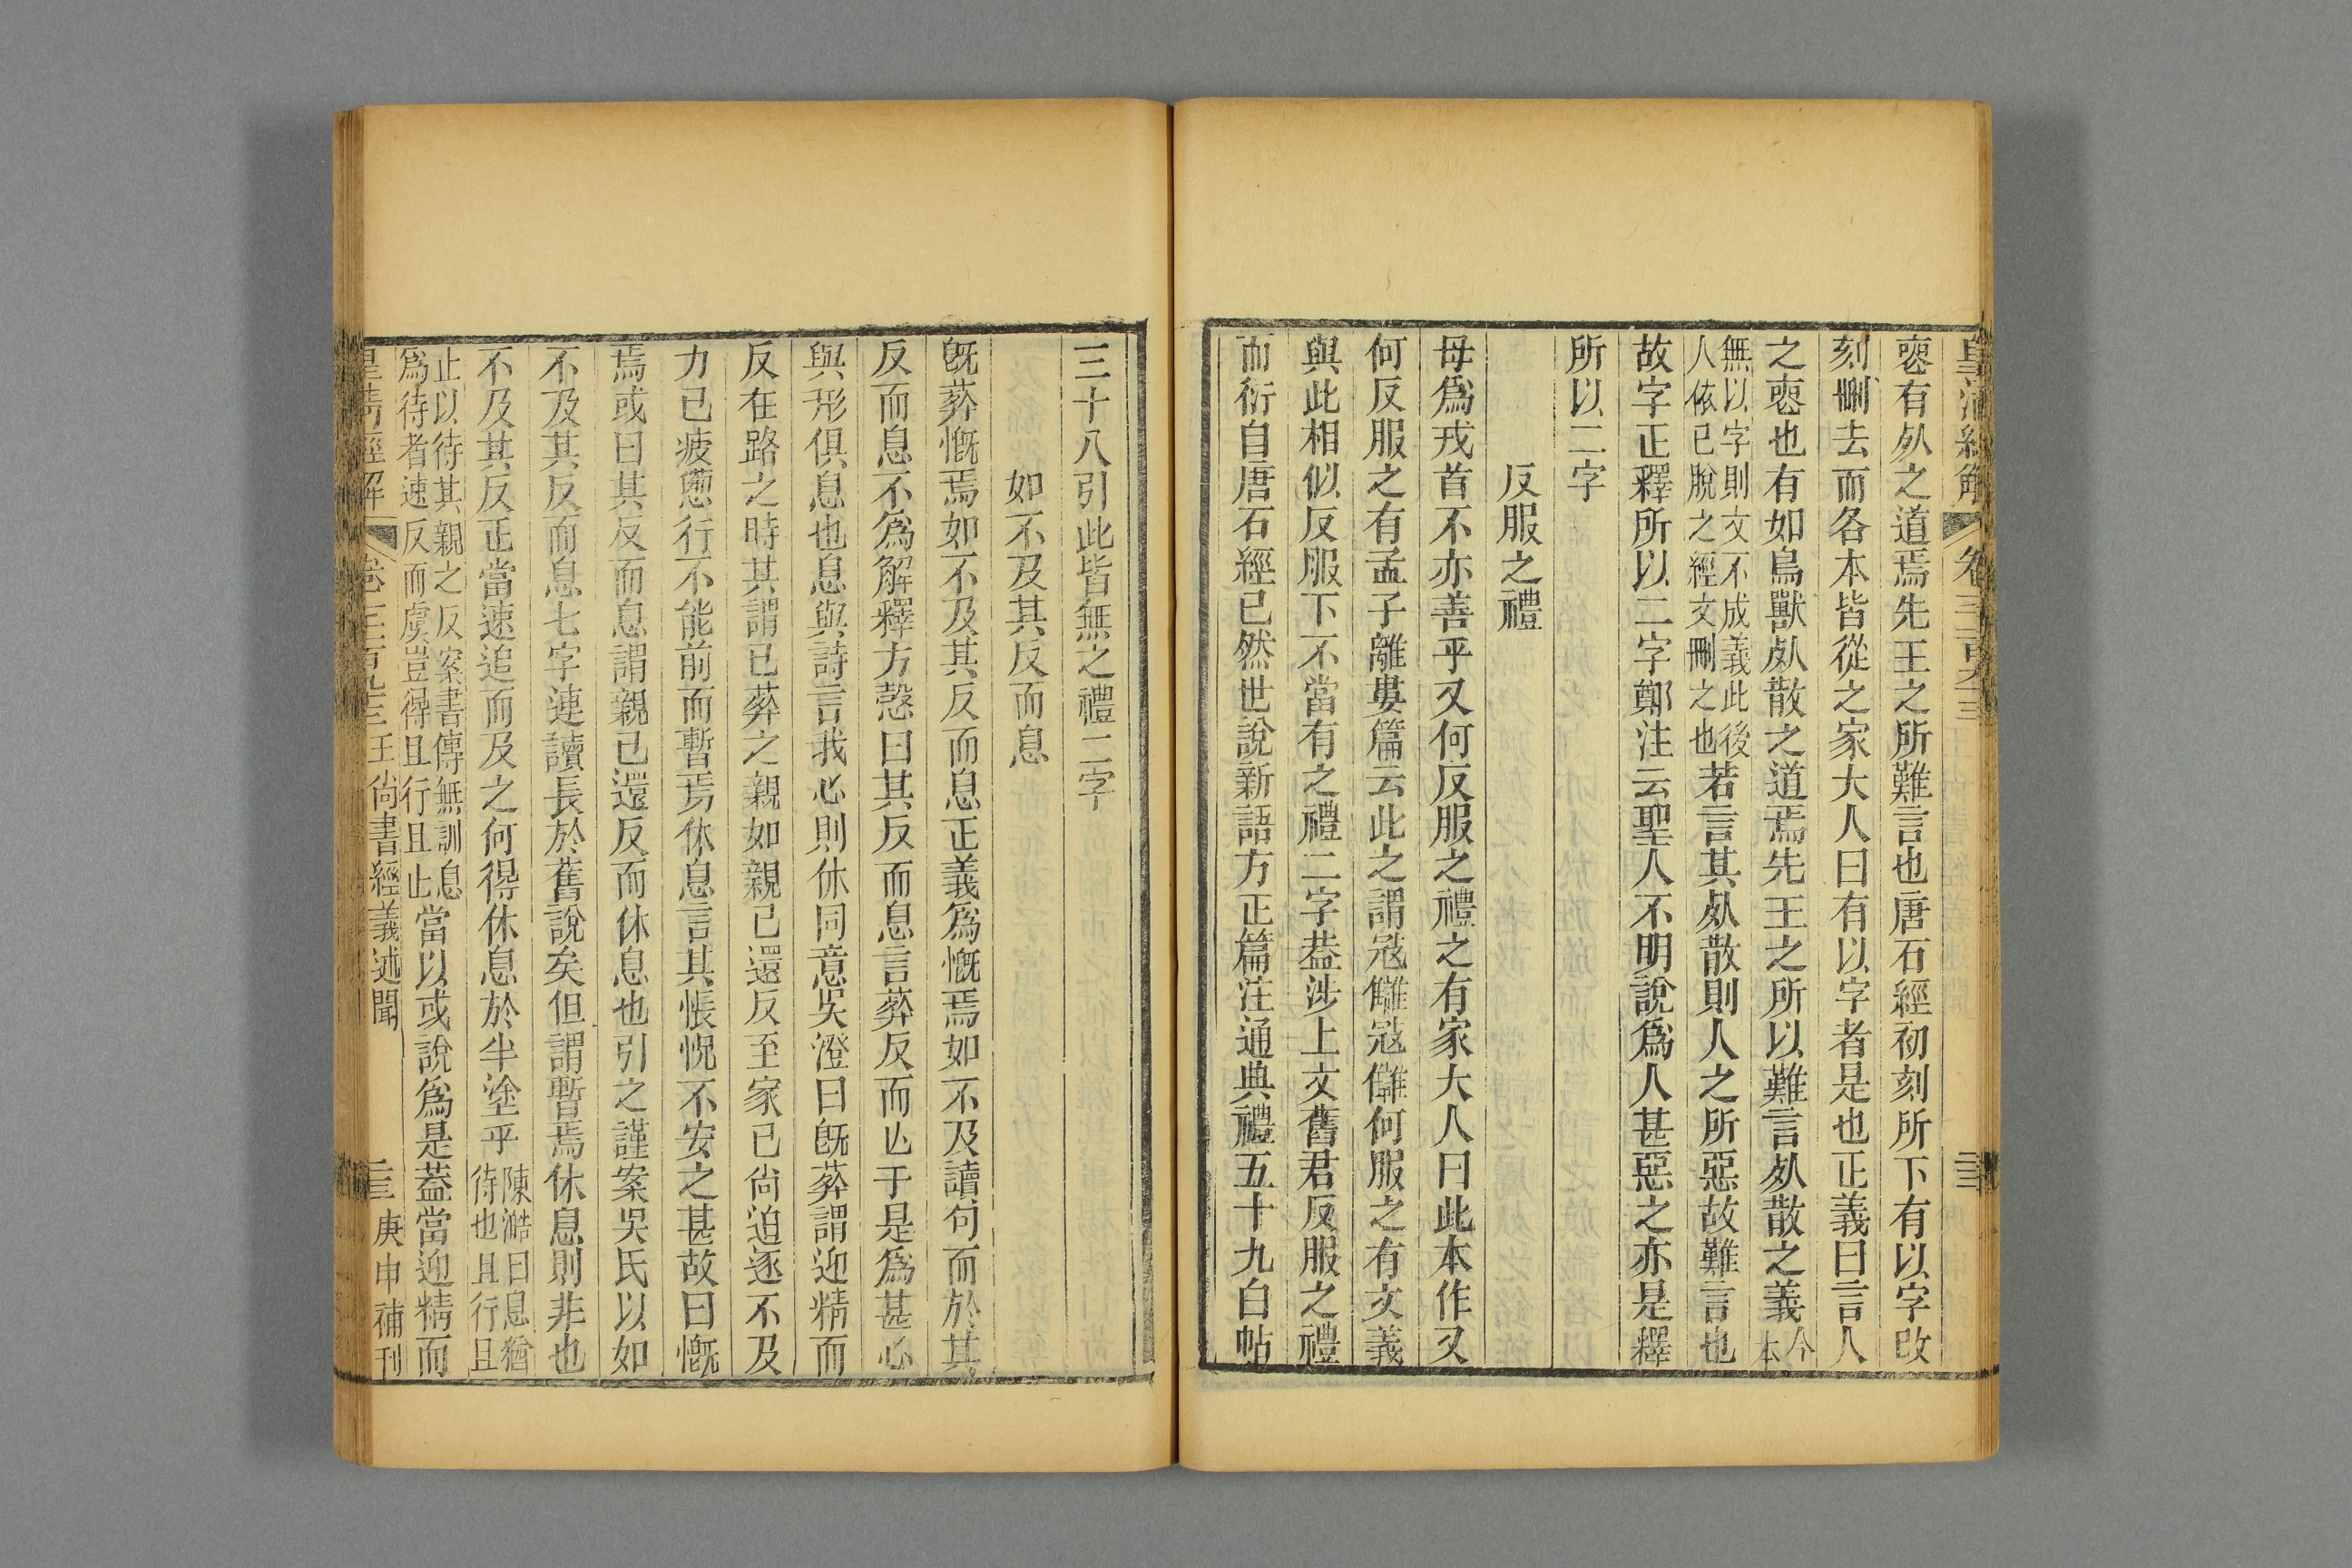 皇清經解 卷三百九三
喪有死之道焉先王之所難言也唐石經初刻所下有以字改
刻刪去而各本皆從之家大人曰有以字者是也正義曰言人
之喪也有如鳥獸死散之道焉先王之所以難言死散之義今本
無以字則文不成義此後人依已脫之經文刪之也若言其死散則人之所惡故難言也
故字正釋所以二字鄭注云聖人不明說爲人甚惡之亦是釋
所以二字
反服之禮
毋爲戎首不亦善乎又何反服之禮之有家大人曰此本作又
何反服之有孟子離婁篇云此之謂寇讎寇讎何服之有文義
與此相似反服下不當有之禮二字葢涉上文舊君反服之禮
而衍自唐石經已然世說新語方正篇注通典禮五十九白帖
三十八引此皆無之禮二字
如不及其反而息
旣葬慨焉如不及其反而息正義爲慨焉如不及讀句而於其
反而息不爲解釋方慤曰其反而息言葬反而亾于是爲甚心
與形俱息也息與詩言我心則休同意吳澄曰旣葬謂迎精而
反在路之時其謂已葬之親如親已還反至家已尙迫逐不及
力已疲憊行不能前而暫焉休息言其悵怳不安之甚故曰慨
焉或曰其反而息謂親已還反而休息也引之謹案吳氏以如
不及其反而息七字連讀長於舊說矣但謂暫焉休息則非也
不及其反正當速追而及之何得休息於半塗乎陳澔曰息猶待也且行且
止以待其親之反案書傳無訓息爲待者速反而虞豈得且行且止當以或說爲是葢當迎精而
皇清經解 卷三百九三 王尙書經義述聞 庚申補刊